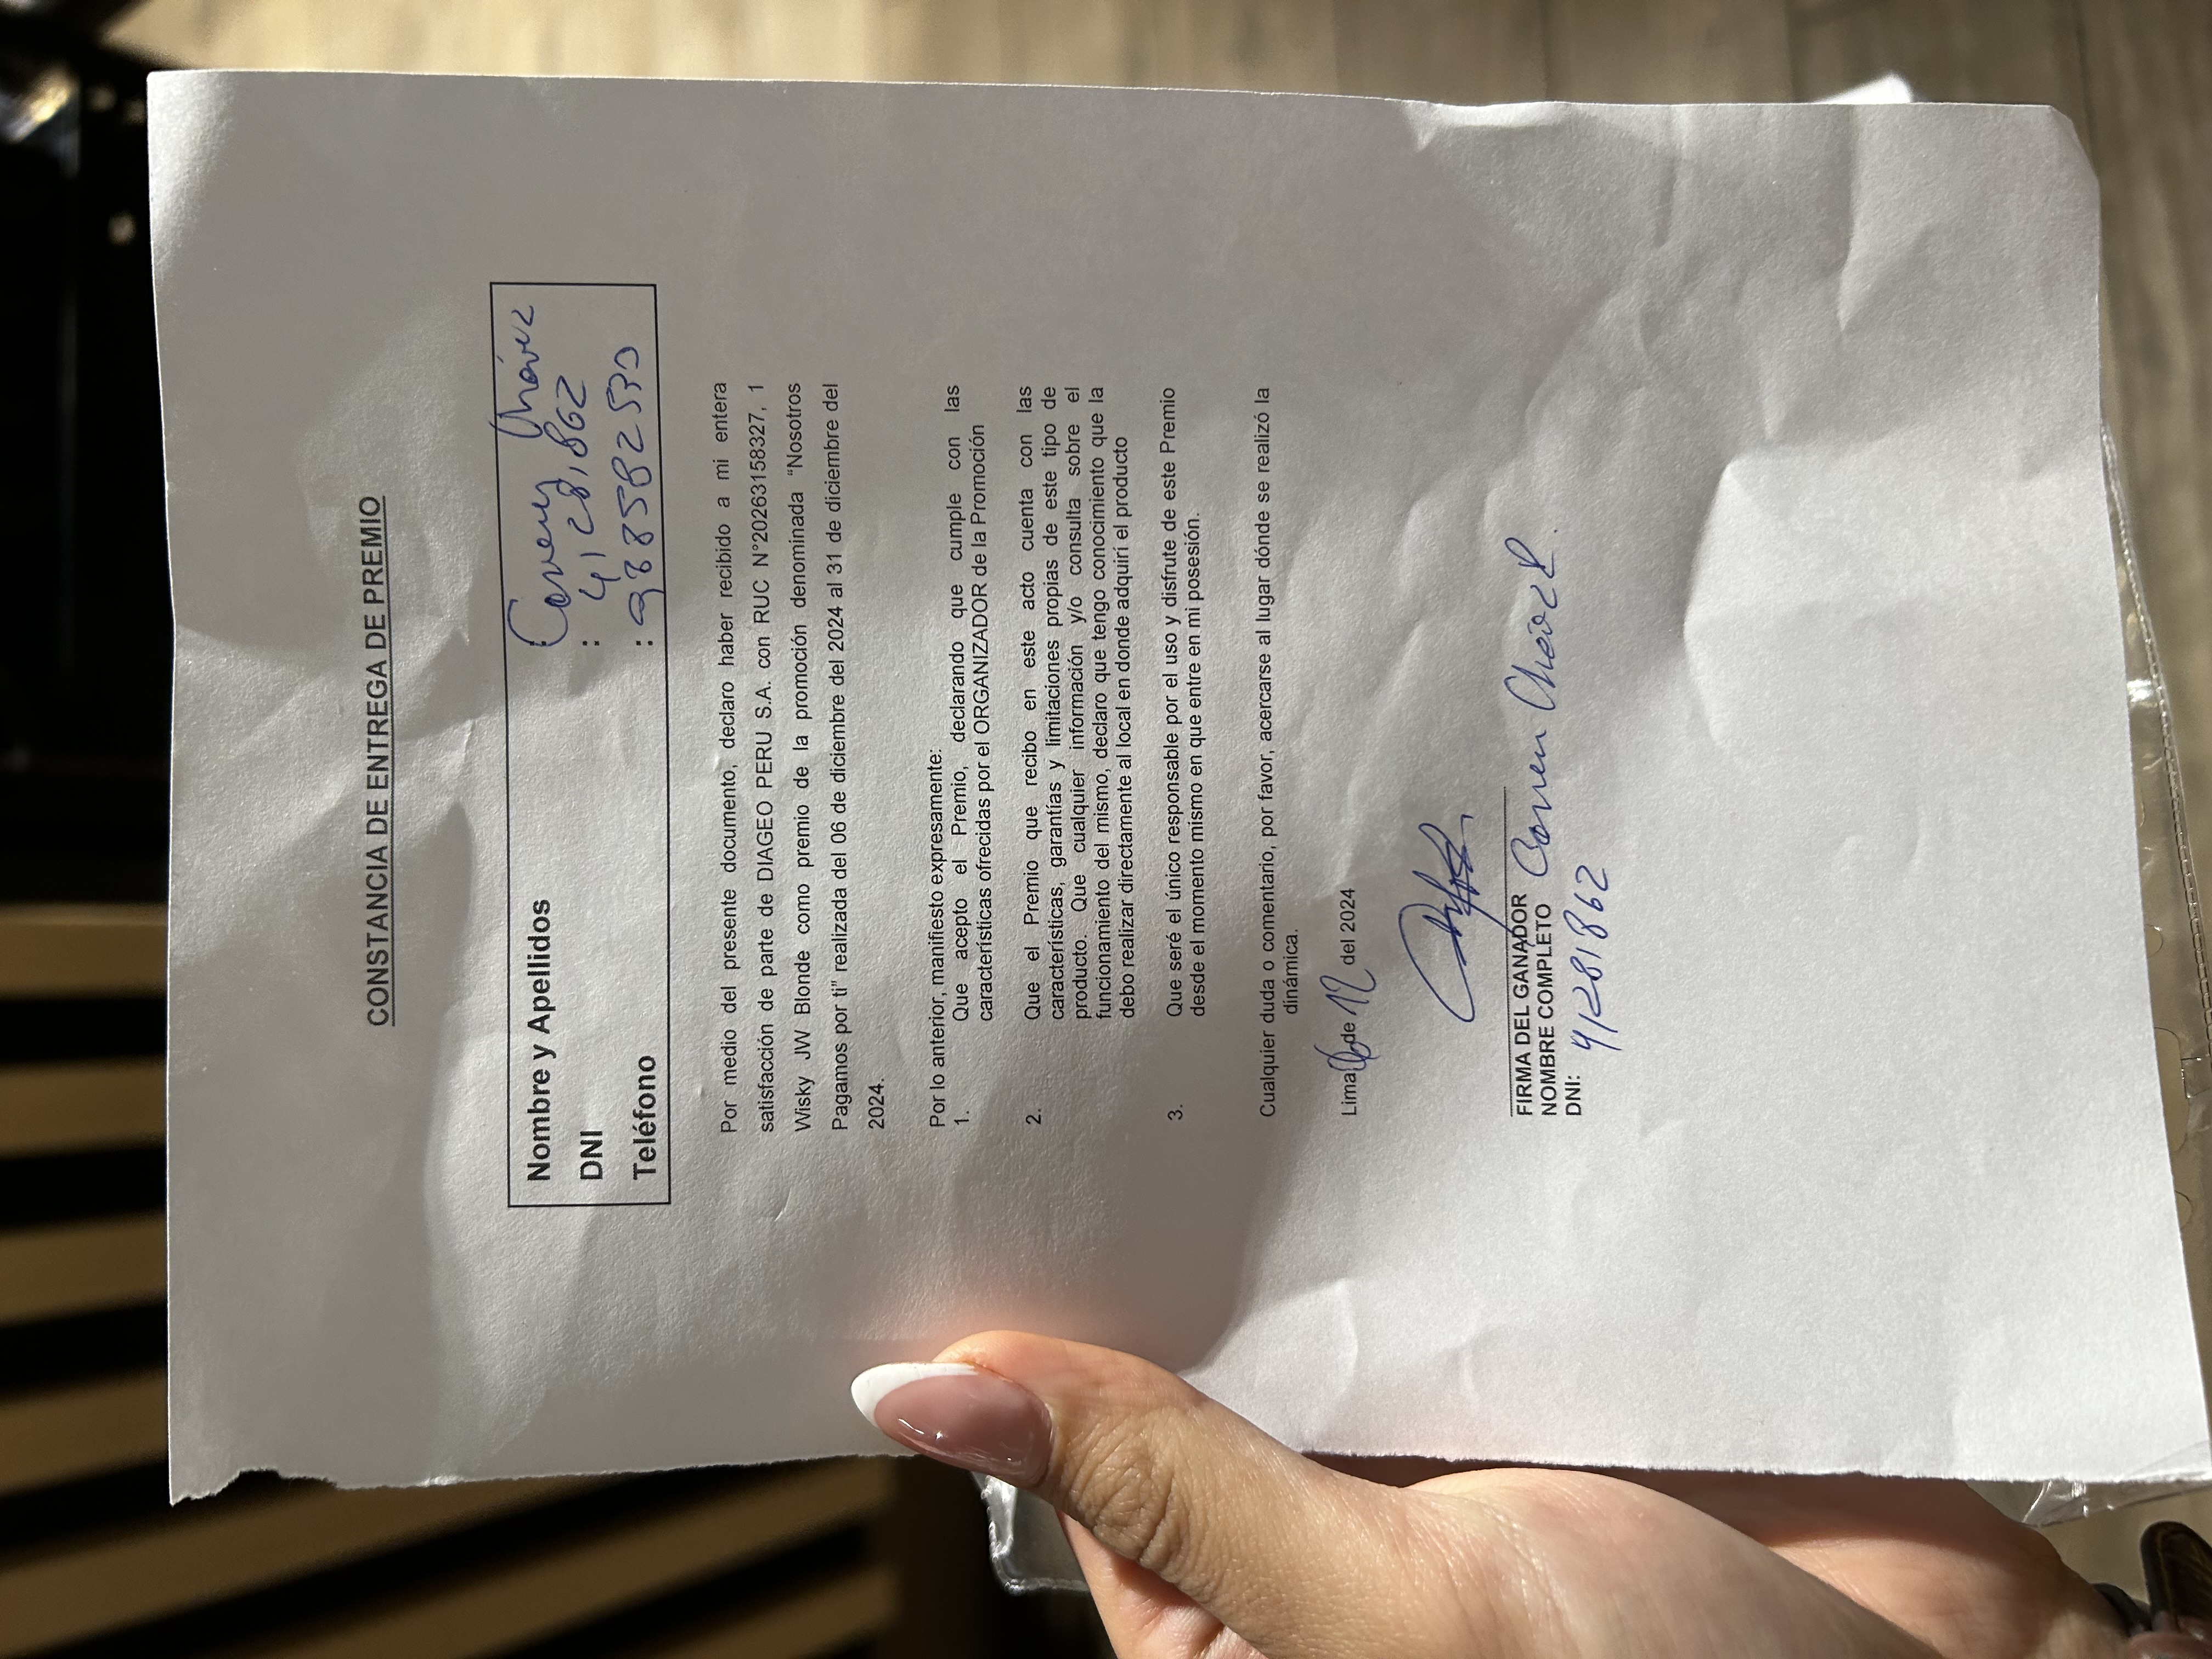 CONSTANCIA DE ENTREGA DE PREMIO
Nombre y Apellidos : Chávez
DNI : 41281862
Teléfono : 988582530
Por medio del presente documento, declaro haber recibido a mi entera
satisfacción de parte de DIAGEO PERU S.A. con RUC N°20263158327, 1
Wisky JW Blonde como premio de la promoción denominada “Nosotros
Pagamos por ti” realizada del 06 de diciembre del 2024 al 31 de diciembre del
2024.
Por lo anterior, manifiesto expresamente:
1. Que acepto el Premio, declarando que cumple con las
características ofrecidas por el ORGANIZADOR de la Promoción
2. Que el Premio que recibo en este acto cuenta con las
características, garantías y limitaciones propias de este tipo de
producto. Que cualquier información y/o consulta sobre el
funcionamiento del mismo, declaro que tengo conocimiento que la
debo realizar directamente al local en donde adquirí el producto
3. Que seré el único responsable por el uso y disfrute de este Premio
desde el momento mismo en que entre en mi posesión.
Cualquier duda o comentario, por favor, acercarse al lugar dónde se realizó la
dinámica.
Lima 06 de 12 del 2024
FIRMA DEL GANADOR
NOMBRE COMPLETO
DNI: 41281862